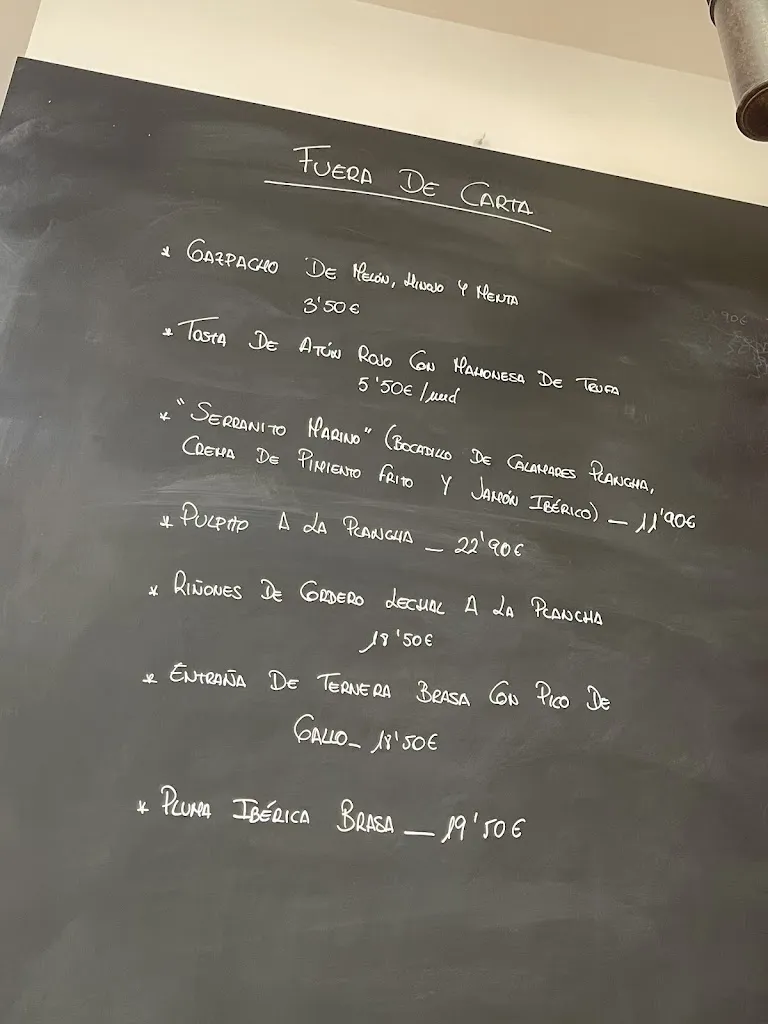 FUERA DE CARTA
* GAZPACHO DE MELÓN, HINOJO Y MENTA
3'50€
* TOSTA DE ATÚN ROJO CON MAHONESA DE TRUFA
5'50€/und
* "SERRANITO MARINO" (BOCADILLO DE CALAMARES PLANCHA,
CREMA DE PIMIENTO FRITO Y JAMÓN IBÉRICO) — 11'90€
* PULPITO A LA PLANCHA — 22'90€
* RIÑONES DE CORDERO LECHAL A LA PLANCHA
18'50€
* ENTRAÑA DE TERNERA BRASA CON PICO DE
GALLO — 18'50€
* PLUMA IBÉRICA BRASA — 19'50€